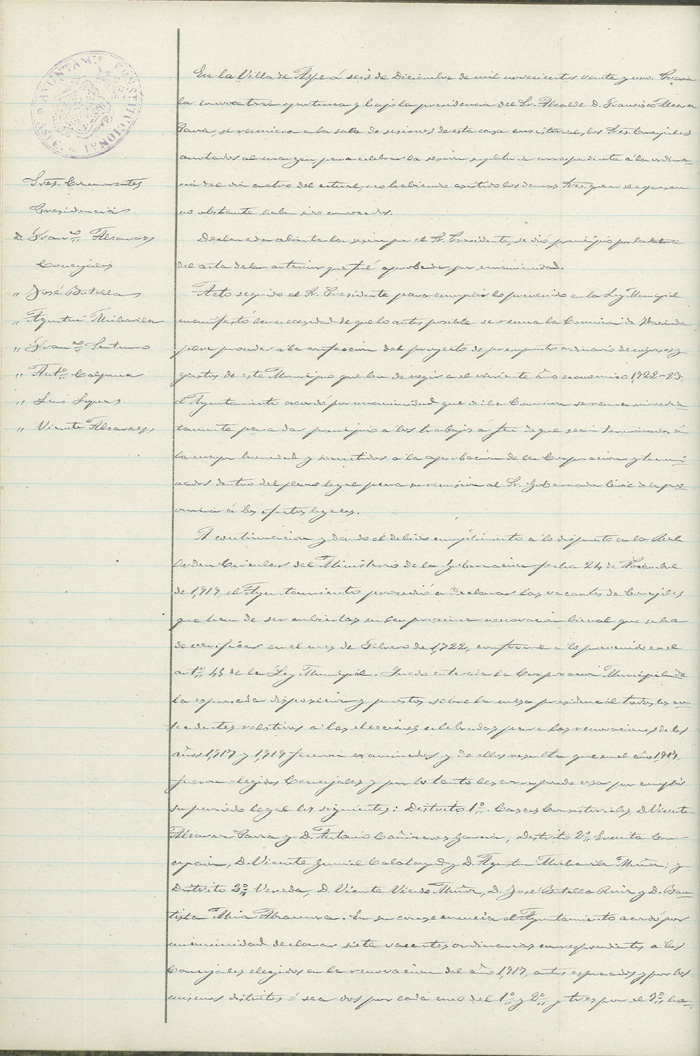 AYUNTAM.to CONSTITUCIONAL ASPE
Sres. Concurrentes
Presidencia
D. Fran.co Alcaraz
Concejales
" José Botella
" Agustín Miravila
" Fran.co
" Ant.o
" Luis
" Vicente Alcaraz
En la Villa de Aspe á seis de Diciembre de mil novecientos veinte y uno. Previa
la convocatoria oportuna y bajo la presidencia del Sr. Alcalde D. Francisco Alcaraz
Pavía, se reunieron en la sala de sesiones de esta casa consistorial, los Sres. Concejales
anotados al margen para celebrar la sesión supletoria correspondiente á la ordina-
ria del día cuatro del actual, no habiendo asistido los demas Sres. que no se expresan
no obstante haber sido convocados.
Declarada abierta la sesion por el Sr. Presidente, se dió principio por la lectura
del acta de la anterior que fué aprobada por unanimidad.
Acto seguido el Sr. Presidente para cumplir lo prevenido en la Ley Municipal
manifestó ser necesidad de que lo antes posible se reuna la Comision de Hacienda
para proceder a la confeccion del proyecto de presupuesto ordinario de ingresos y
gastos de este Municipio que ha de regir en el año economico 1922-23;
el Ayuntamiento acordó por unanimidad que dicha Comision se reuna inmedia-
tamente para dar principio a los trabajos a fin de que sean terminados á
la mayor brevedad y sometidos a la aprobacion de la Corporacion y
dentro del plazo legal para su remision al Sr. Gobernador Civil de la pro-
vincia á los efectos legales.
A continuacion y dando el debido cumplimiento á lo dispuesto en la Real
orden Circular del Ministerio de la Gobernacion fecha 24 de Noviembre
de 1919, el Ayuntamiento procedió a declarar las vacantes de Concejales
que han de ser cubiertas en la proxima renovacion bienal que se ha
de verificar en el mes de Febrero de 1922, conforme a lo prevenido en el
art.o 45 de la Ley Municipal. Enterada la Corporacion Municipal de
la expresada disposicion y puestos sobre la mesa presidencial todos los an-
tecedentes relativos a las elecciones celebradas para las renovaciones de los
años 1917 y 1919 fueron examinados y de ellos resulta que en el año 1917,
fueron elegidos Concejales y por lo tanto les corresponde cesar por cumplir
su periodo legal los siguientes: Distrito 1.o Casas Consistoriales, D. Vicente
Alcaraz Pavía y D. Antonio Cañizares García; Distrito 2.o
D. Vicente Gumiel Calatayud y D. Agustín Miravila Muñoz; y
Distrito 3.o Vereda, D. Vicente Muñoz, D. José Botella Ruiz y D. Bau-
tista Mira. En su consecuencia el Ayuntamiento acordó por
unanimidad declarar siete vacantes ordinarias correspondientes a los
Concejales elegidos en la renovacion del año 1917, antes expresados y por los
mismos distritos ó sea dos por cada uno del 1.o y 2.o, y tres por el 3.o